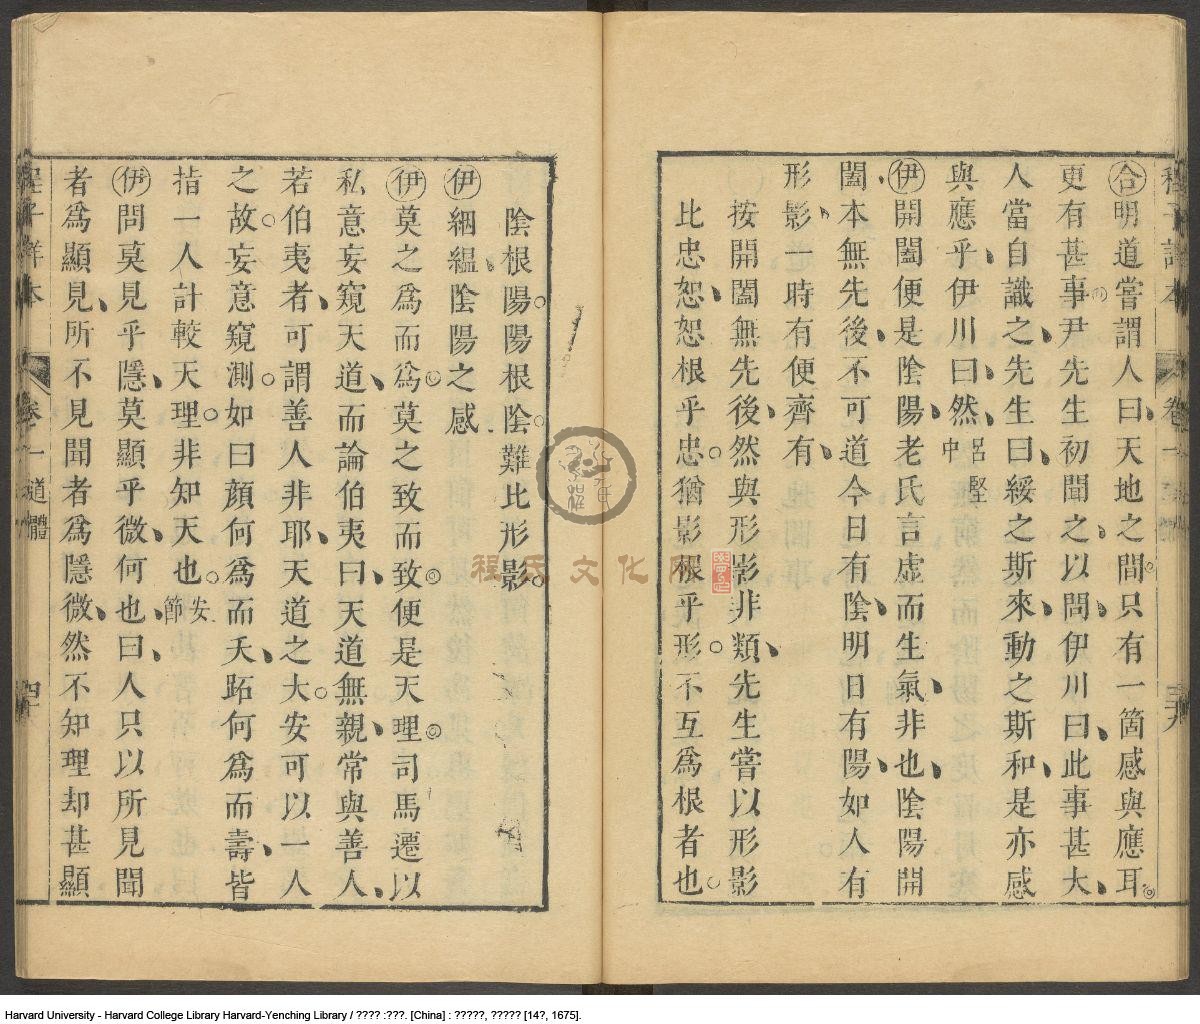 合明道嘗謂人曰天地之間只有一箇感與應耳
更有甚事尹先生初聞之以問伊川曰此事甚大
人當自識之先生曰綏之斯來動之斯和是亦感
與應乎伊川曰然呂堅中
伊開闔便是陰陽老氏言虛而生氣非也陰陽開
闔本無先後不可道今日有陰明日有陽如人有
形影一時有便齊有
按開闔無先後然與形影非類先生嘗以形影
比忠恕恕根乎忠猶影根乎形不互爲根者也
陰根陽陽根陰難比形影
伊絪緼陰陽之感
伊莫之爲而爲莫之致而致便是天理司馬遷以
私意妄窺天道而論伯夷曰天道無親常與善人
若伯夷者可謂善人非耶天道之大安可以一人
之故妄意窺測如曰顔何爲而夭跖何爲而壽皆
指一人計較天理非知天也安節
伊問莫見乎隱莫顯乎微何也曰人只以所見聞
者爲顯見所不見聞者爲隱微然不知理却甚顯
程子詳本 卷一 道體
程氏文化网
Harvard University - Harvard College Library Harvard-Yenching Library / ???? :???. [China] : ?????, ????? [14?, 1675].